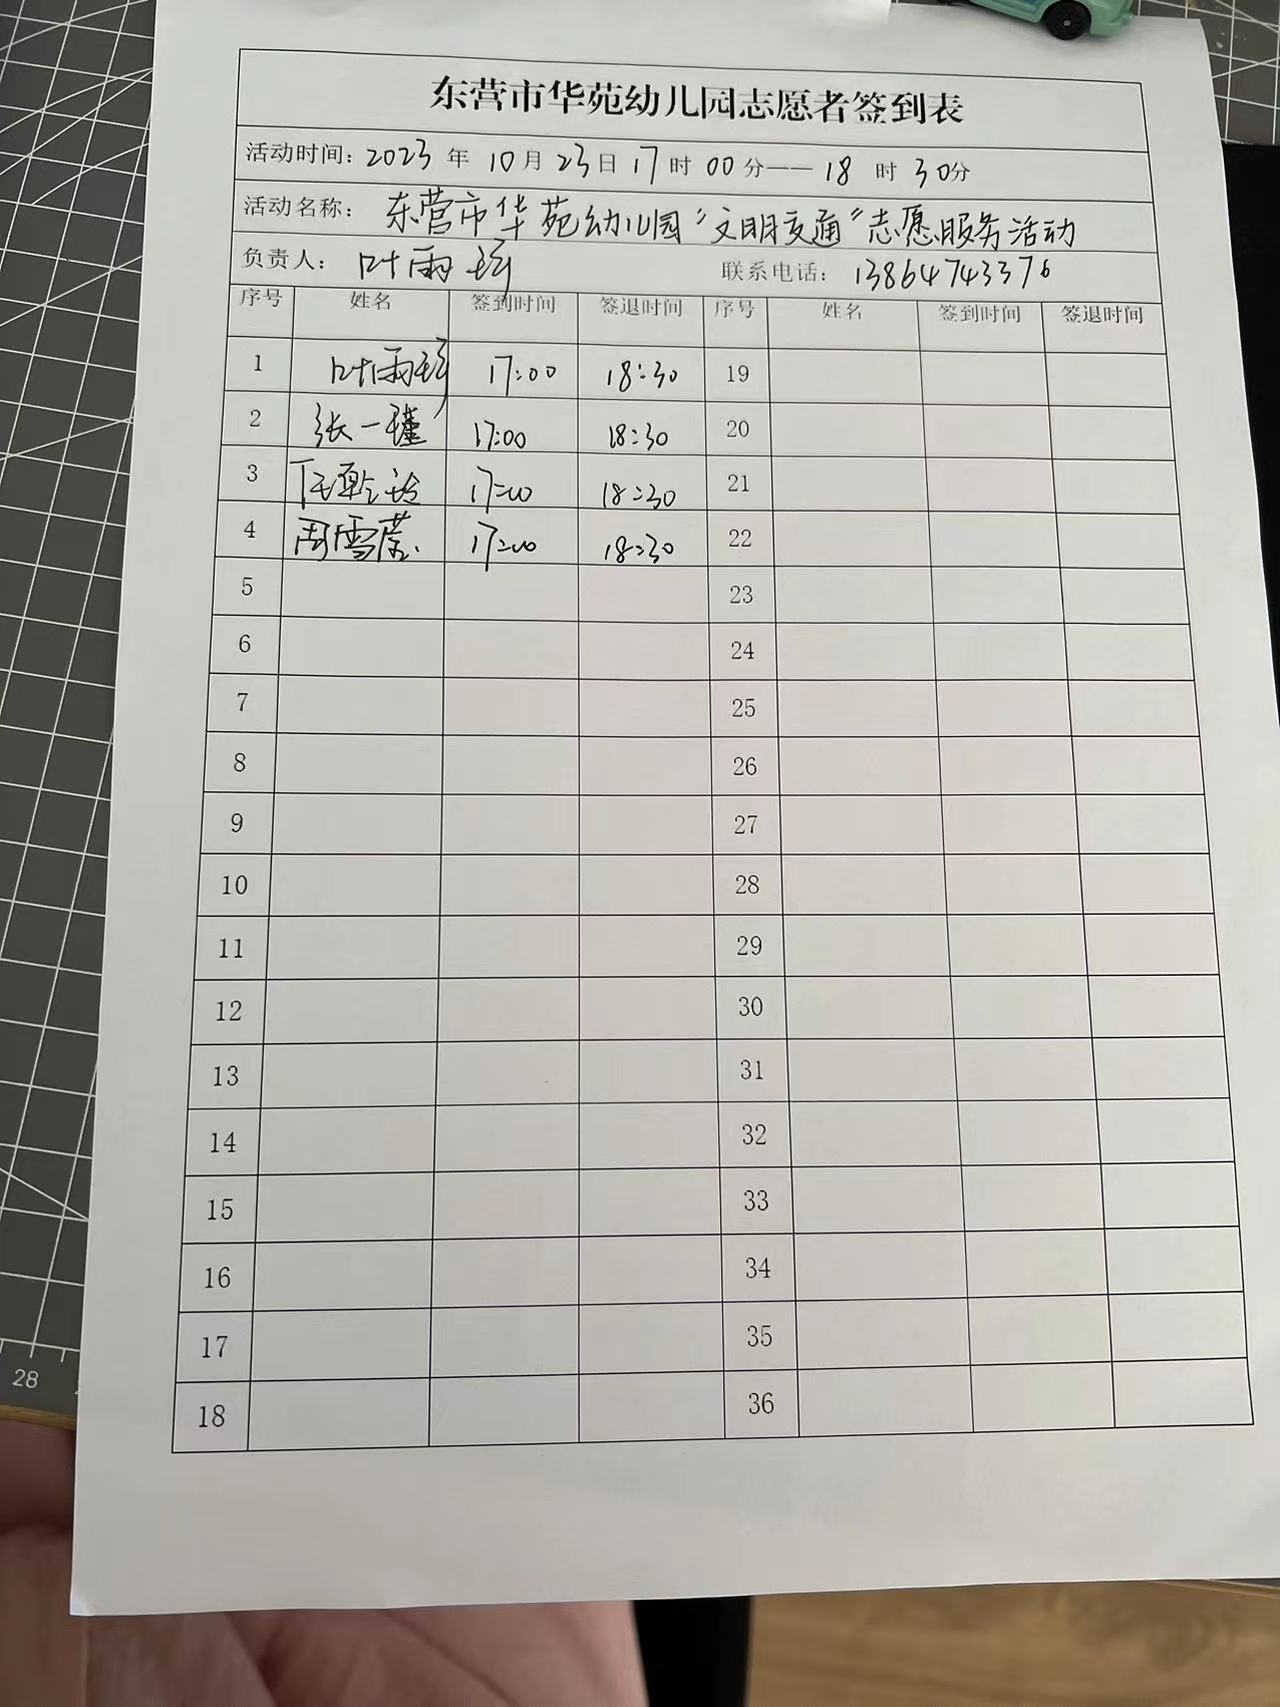 东营市华苑幼儿园志愿者签到表
活动时间：2023年10月23日17时00分——18时30分
活动名称：东营市华苑幼儿园“文明交通”志愿服务活动
负责人：叶雨 联系电话：13864743376
序号 姓名 签到时间 签退时间 序号 姓名 签到时间 签退时间
1 叶雨 17:00 18:30 19
2 张一瑾 17:00 18:30 20
3 17:00 18:30 21
4 周雪 17:00 18:30 22
5 23
6 24
7 25
8 26
9 27
10 28
11 29
12 30
13 31
14 32
15 33
16 34
17 35
18 36
28